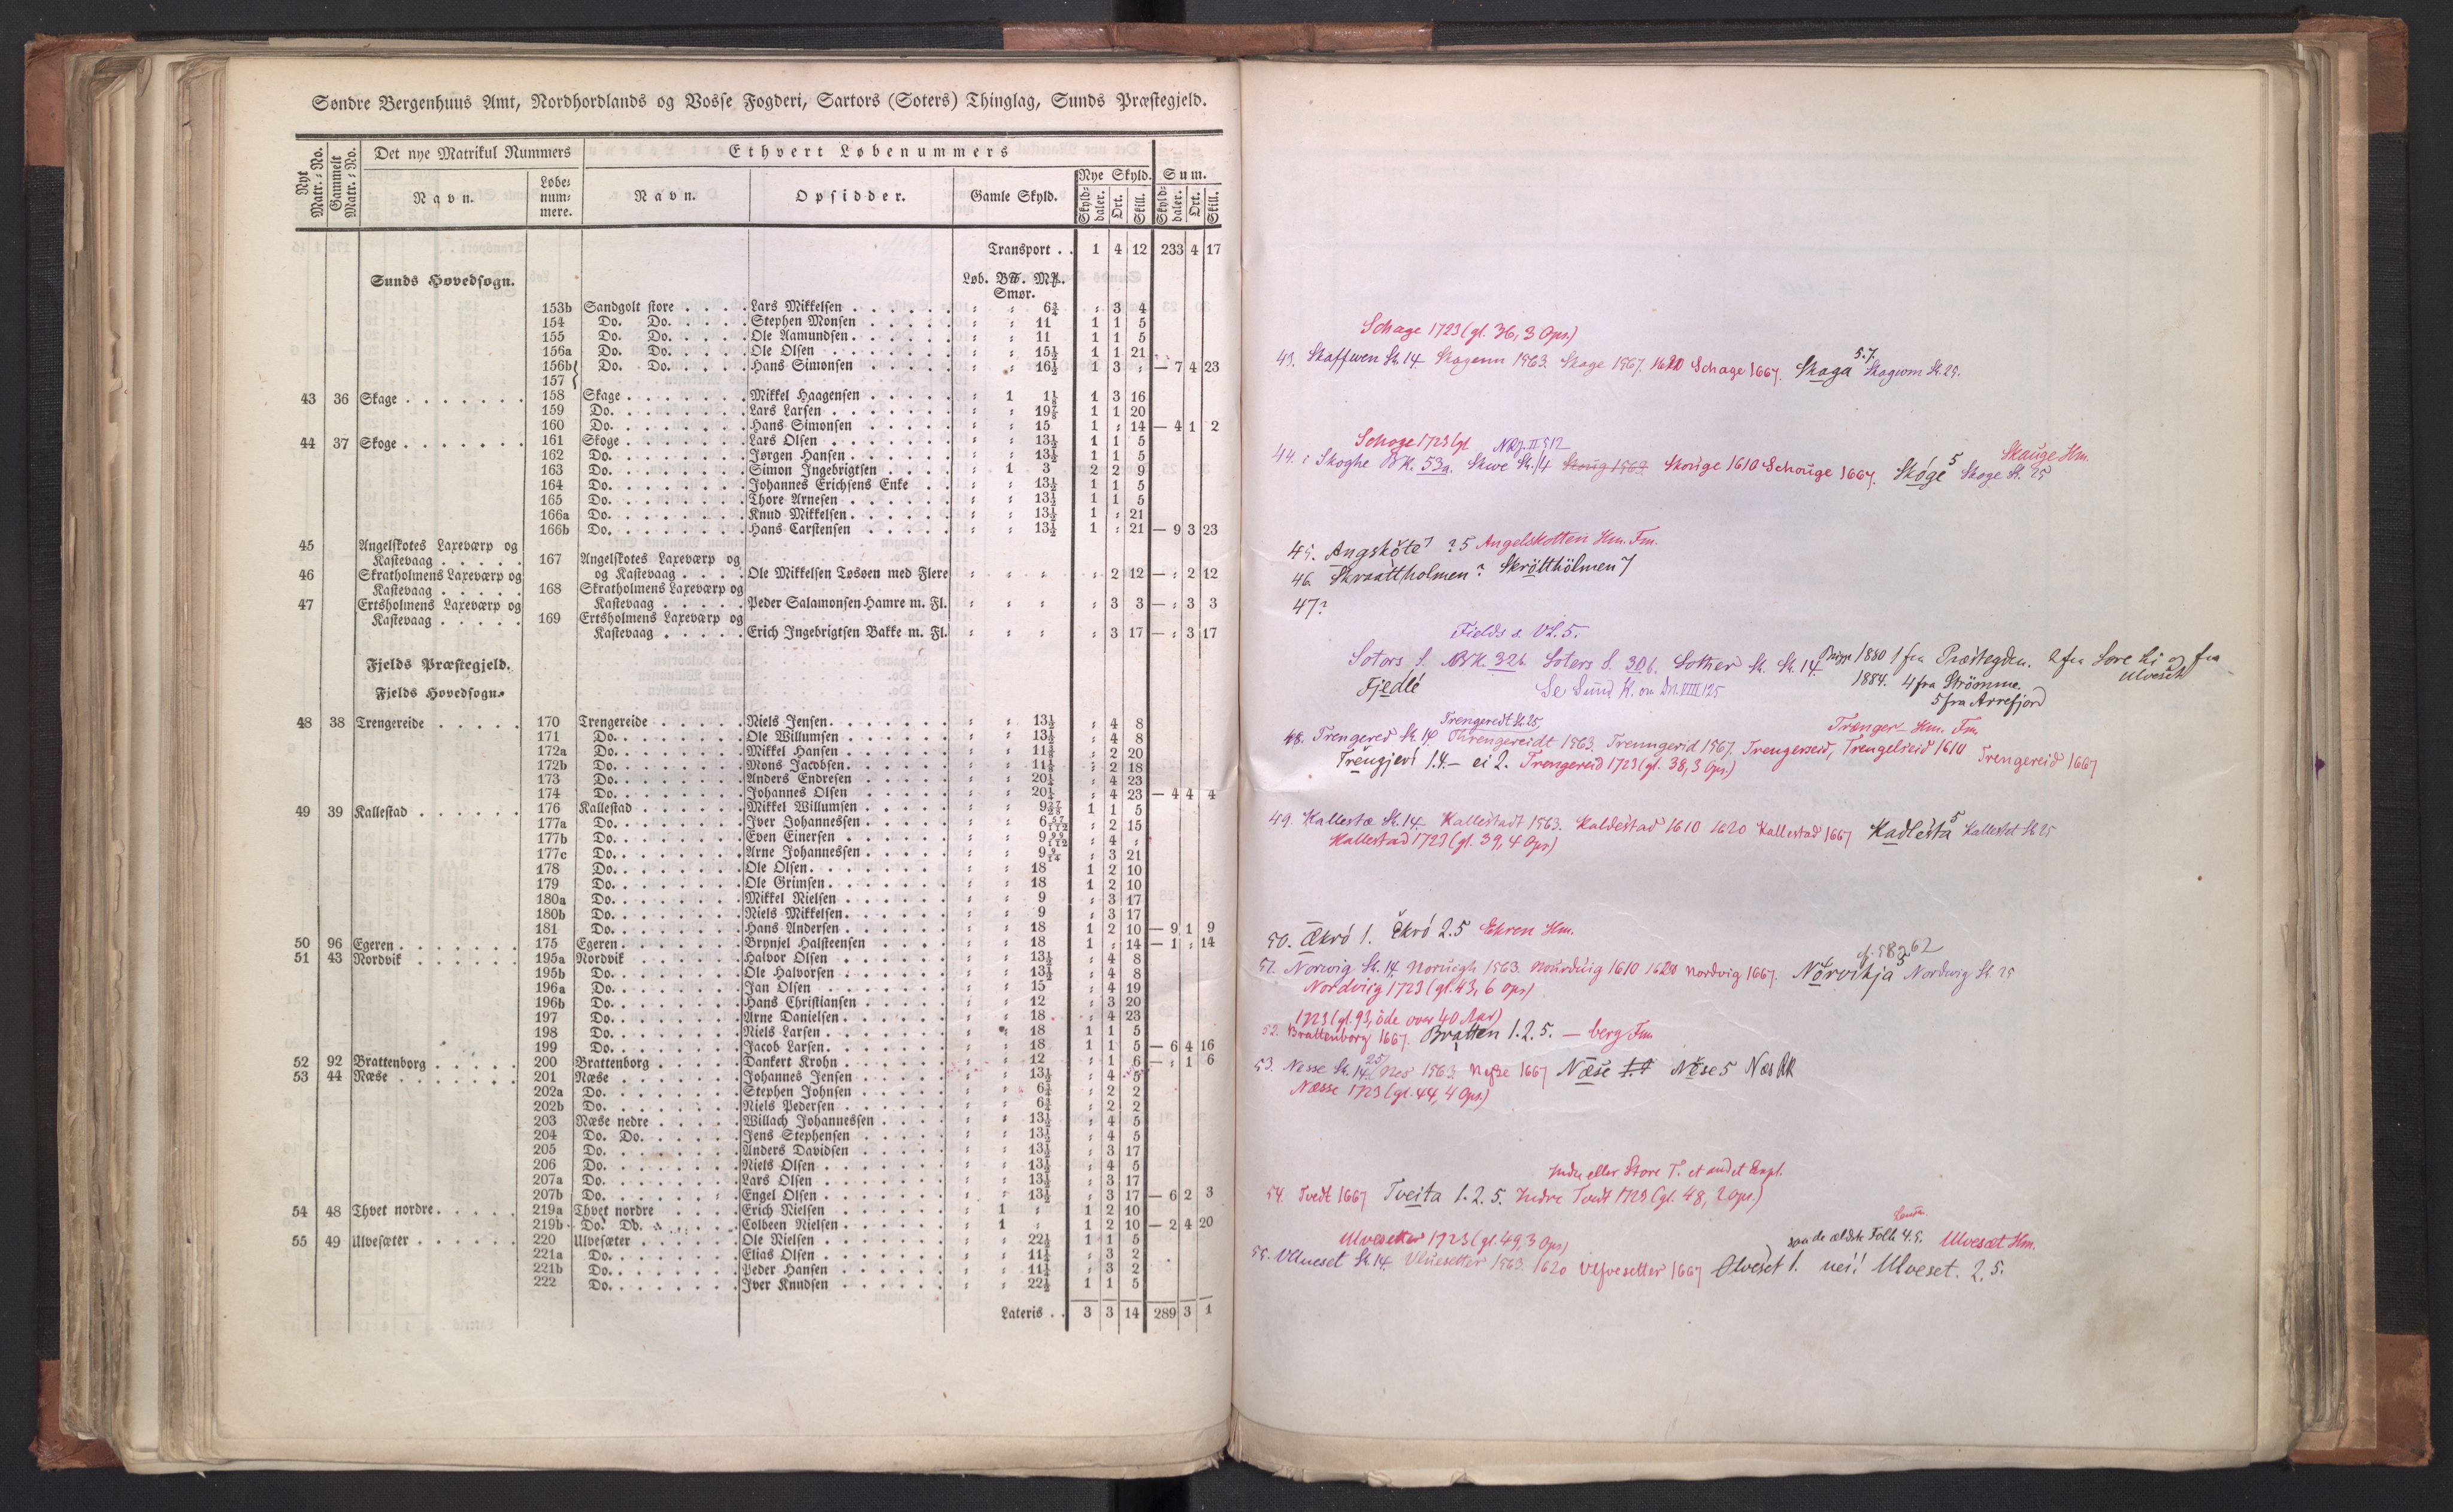 Søndre Bergenhuus Amt, Nordhordlands og Vosse Fogderi, Sartors (Soters) Thinglag, Sunds Præstegjeld.
Nyt Matr.-No. Gammelt Matr.-No. Det nye Matrikul Nummers Ethvert Løbenummers
Navn. Løbe-nummere. Navn. Opsidder. Gamle Skyld. Nye Skyld. Sum.
Skylddaler. Ort. Skill. Skylddaler. Ort. Skill.
Transport . . 1 4 12 233 4 17
Sunds Hovedsogn. Løb. B℔. Mk.
Smør.
153b Sandgolt store . . . . Lars Mikkelsen . . . . . . : : 6¾ : 3 4
154 Do. Do. . . . . Stephen Monsen . . . . . : : 11 1 1 5
155 Do. Do. . . . . Ole Aamundsen . . . . . : : 11 1 1 5
156a Do. Do. . . . . Ole Olsen . . . . . . . : : 15½ 1 1 21
156b Do. Do. . . . . Hans Simonsen . . . . . : : 16½ 1 3 : — 7 4 23
157
43 36 Skage . . . . . . . 158 Skage . . . . . . . Mikkel Haagensen . . . . : 1 1⅛ 1 3 16
159 Do. . . . . . . . Lars Larsen . . . . . . . : : 19⅞ 1 1 20
160 Do. . . . . . . . Hans Simonsen . . . . . : : 15 1 : 14 — 4 1 2
44 37 Skoge . . . . . . . 161 Skoge . . . . . . . Lars Olsen . . . . . . . : : 13½ 1 1 5
162 Do. . . . . . . . Jørgen Hansen . . . . . . : : 13½ 1 1 5
163 Do. . . . . . . . Simon Ingebrigtsen . . . . : 1 3 2 2 9
164 Do. . . . . . . . Johannes Erichsens Enke . . : : 13½ 1 1 5
165 Do. . . . . . . . Thore Arnesen . . . . . . : : 13½ 1 1 5
166a Do. . . . . . . . Knud Mikkelsen . . . . . . : : 13½ 1 : 21
166b Do. . . . . . . . Hans Carstensen . . . . . : : 13½ 1 : 21 — 9 3 23
45 Angelskotes Laxeværp og
Kastevaag . . . . . 167 Angelskotes Laxeværp og
og Kastevaag . . . . Ole Mikkelsen Tøsøen med Flere : : : : 2 12 — : 2 12
46 Skratholmens Laxeværp og
Kastevaag . . . . . 168 Skratholmens Laxeværp og
Kastevaag . . . . . Peder Salamonsen Hamre m. Fl. : : : : 3 3 — : 3 3
47 Ertsholmens Laxeværp og
Kastevaag . . . . . 169 Ertsholmens Laxeværp og
Kastevaag . . . . . Erich Ingebrigtsen Bakke m. Fl. : : : : 3 17 — : 3 17
Fjelds Præstegjeld.
Fjelds Hovedsogn.
48 38 Trengereide . . . . . 170 Trengereide . . . . . Niels Jensen . . . . . . . : : 13½ : 4 8
171 Do. . . . . . . . Ole Willumsen . . . . . . : : 13½ : 4 8
172a Do. . . . . . . . Mikkel Hansen . . . . . . : : : 2 20
172b Do. . . . . . . . Mons Jacobsen . . . . . . : : : 2 18
173 Do. . . . . . . . Anders Endresen . . . . . : : 20¼ : 4 23
174 Do. . . . . . . . Johannes Olsen . . . . . : : 20¼ : 4 23 — 4 4 4
49 39 Kallestad . . . . . . 176 Kallestad . . . . . . Mikkel Willumsen . . . . . : : 1 1 5
177a Do. . . . . . . . Iver Johannessen . . . . . : : : 2 15
177b Do. . . . . . . . Even Einersen . . . . . . : : : 4 :
177c Do. . . . . . . . Arne Johannessen . . . . . : : : 3 21
178 Do. . . . . . . . Ole Olsen . . . . . . . : : 18 1 2 10
179 Do. . . . . . . . Ole Grimsen . . . . . . . : : 18 1 2 10
180a Do. . . . . . . . Mikkel Nielsen . . . . . . : : 9 : 3 17
180b Do. . . . . . . . Niels Mikkelsen . . . . . . : : 9 : 3 17
181 Do. . . . . . . . Hans Andersen . . . . . . : : 18 1 2 10 — 9 1 9
50 96 Egeren . . . . . . . 175 Egeren . . . . . . . Brynjel Halsteensen . . . . : : 18 1 : 14 — 1 : 14
51 43 Nordvik . . . . . . 195a Nordvik . . . . . . Halvor Olsen . . . . . . : : 13½ : 4 8
195b Do. . . . . . . . Ole Halvorsen . . . . . . : : 13½ : 4 8
196a Do. . . . . . . . Jan Olsen . . . . . . . : : 15 : 4 19
196b Do. . . . . . . . Hans Christiansen . . . . . : : 12 : 3 20
197 Do. . . . . . . . Arne Danielsen . . . . . . : : 18 : 4 23
198 Do. . . . . . . . Niels Larsen . . . . . . . : : 18 1 1 5
199 Do. . . . . . . . Jacob Larsen . . . . . . . : : 18 1 1 5 — 6 4 16
52 92 Brattenborg . . . . . 200 Brattenborg . . . . . Dankert Krohn . . . . . . : : 12 : 1 6 — : 1 6
53 44 Næse . . . . . . . 201 Næse . . . . . . . Johannes Jensen . . . . . : : 13½ : 4 5
202a Do. . . . . . . . Stephen Johnsen . . . . . : : 6¾ : 2 2
202b Do. . . . . . . . Niels Pedersen . . . . . . : : 6¾ : 2 2
203 Næse nedre . . . . . Willach Johannessen . . . . : : 13½ : 4 5
204 Do. Do. . . . . . Jens Stephensen . . . . . : : 13½ : 4 5
205 Do. . . . . . . . Anders Davidsen . . . . . : : 13½ : 3 17
206 Do. . . . . . . . Niels Olsen . . . . . . . : : 13½ : 4 5
207a Do. . . . . . . . Lars Olsen . . . . . . . : : 13½ : 3 17
207b Do. . . . . . . . Engel Olsen . . . . . . . : : 13½ : 3 17 — 6 2 3
54 48 Thvet nordre . . . . . 219a Thvet nordre . . . . Erich Nielsen . . . . . . : 1 : 1 2 10
219b Do. Do. . . . . . Colbeen Nielsen . . . . . . : 1 : 1 2 10 — 2 4 20
55 49 Ulvesæter . . . . . . 220 Ulvesæter . . . . . . Ole Nielsen . . . . . . . : : 22½ 1 1 5
221a Do. . . . . . . . Elias Olsen . . . . . . . : : 11¼ : 3 2
221b Do. . . . . . . . Peder Hansen . . . . . . : : 11¼ : 3 2
222 Do. . . . . . . . Iver Knudsen . . . . . . : : 22½ 1 1 5
Lateris . . 3 3 14 289 3 1
Schage 1723 (gl. 36, 3 Ops.)
43. Skaffwen Sk. 14. Skagenn 1563. Skage 1567. 1620 Schage 1667. Skaga 5.7. Skagwm St. 25.
Schoge 1723 (gl. NRJ. II 512 Skauge Hm.
44. i Skoghe BK. 53a. Skwe Sk. 14 Skoug 1563 Skouge 1610 Schouge 1667. Skóge 5 Skoge St. 25
45. Angsköte ? 5 Angelskotten Hm. Fm.
46. Skraattholmen? Skröttholmen 7
47?
Fields s. VL. 5.
Sotors S. BK. 32b Soters S. 30b. Sother sk. Sk. 14. 1880 1 fra Præstegden. 2 fra Sore Li og fra Ulveset
Fjedlé Se Sund H. VIII 125 1884. 4 fra Strömme.
5 fra Arrefjord
Trengeredt St. 25 Trænger- Hm. Fm.
48. Trengered Sk. 14 Threngereidt 1563. Trenngerid 1567. Trengerseid, Trengelseid 1610 Trengereid 1667
1.4. ei 2. Trengereid 1723 (gl. 38, 3 Ops.)
49. Kallestæ Sk. 14 Kallestadt 1563. Kaldestad 1610 1620 Kallestad 1667 Kadlesta 5 Kallestet St. 25
Kallestad 1723 (gl. 39, 4 Ops)
50. Ækró 1. Ekró 2.5 Ekren Hm.
cf. 58, 62
51. Norwig Sk. 14. Noruigh 1563. Nourduig 1610 1620 Nordvig 1667. Norvikja 5 Nordwig St. 25
Nordvig 1723 (gl. 43, 6 Ops)
1723 (gl. 93, öde over 40 Aar)
52. Brattenborg 1667. Bratten 1.2.5. — berg Fm.
53. Nesse Sk. 14. 25 Nes 1563. Nesse 1667 Næse Nese 5 Næs RR
Næsse 1723 (gl. 44, 4 Ops.)
Indre eller Store T. et andet Expl.
54. Tvedt 1667 Tveita 1.2.5. Indre Tvedt 1723 (gl. 48, 2 Ops.)
Ulvesetter 1723 (gl. 49, 3 Ops) saa de ældste Folk 4.5. Ulvesæt Hm.
55. Vllueset Sk. 14. Vluesetter 1563. 1620 Vlfvesetter 1667 Olveset 1. nei! Ulveset. 2.5.